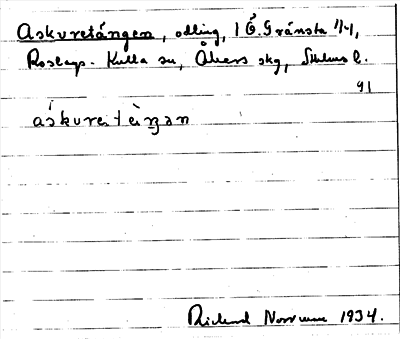 Askvretången, odling, i Ö. Gränsta 1/4,
Roslags-Kulla sn, Åkers skg, Sthlms l.
91
áskvre:tèŋən
Rickard Norrman 1934.